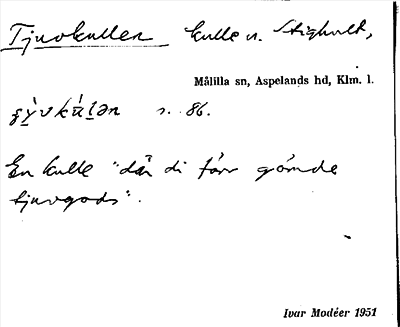 Tjuvkullen kulle v. Stighult,
Målilla sn, Aspelands hd, Klm. l.
s. 86.
En kulle "där di förr gömde
tjuvgods".
Ivar Modéer 1951